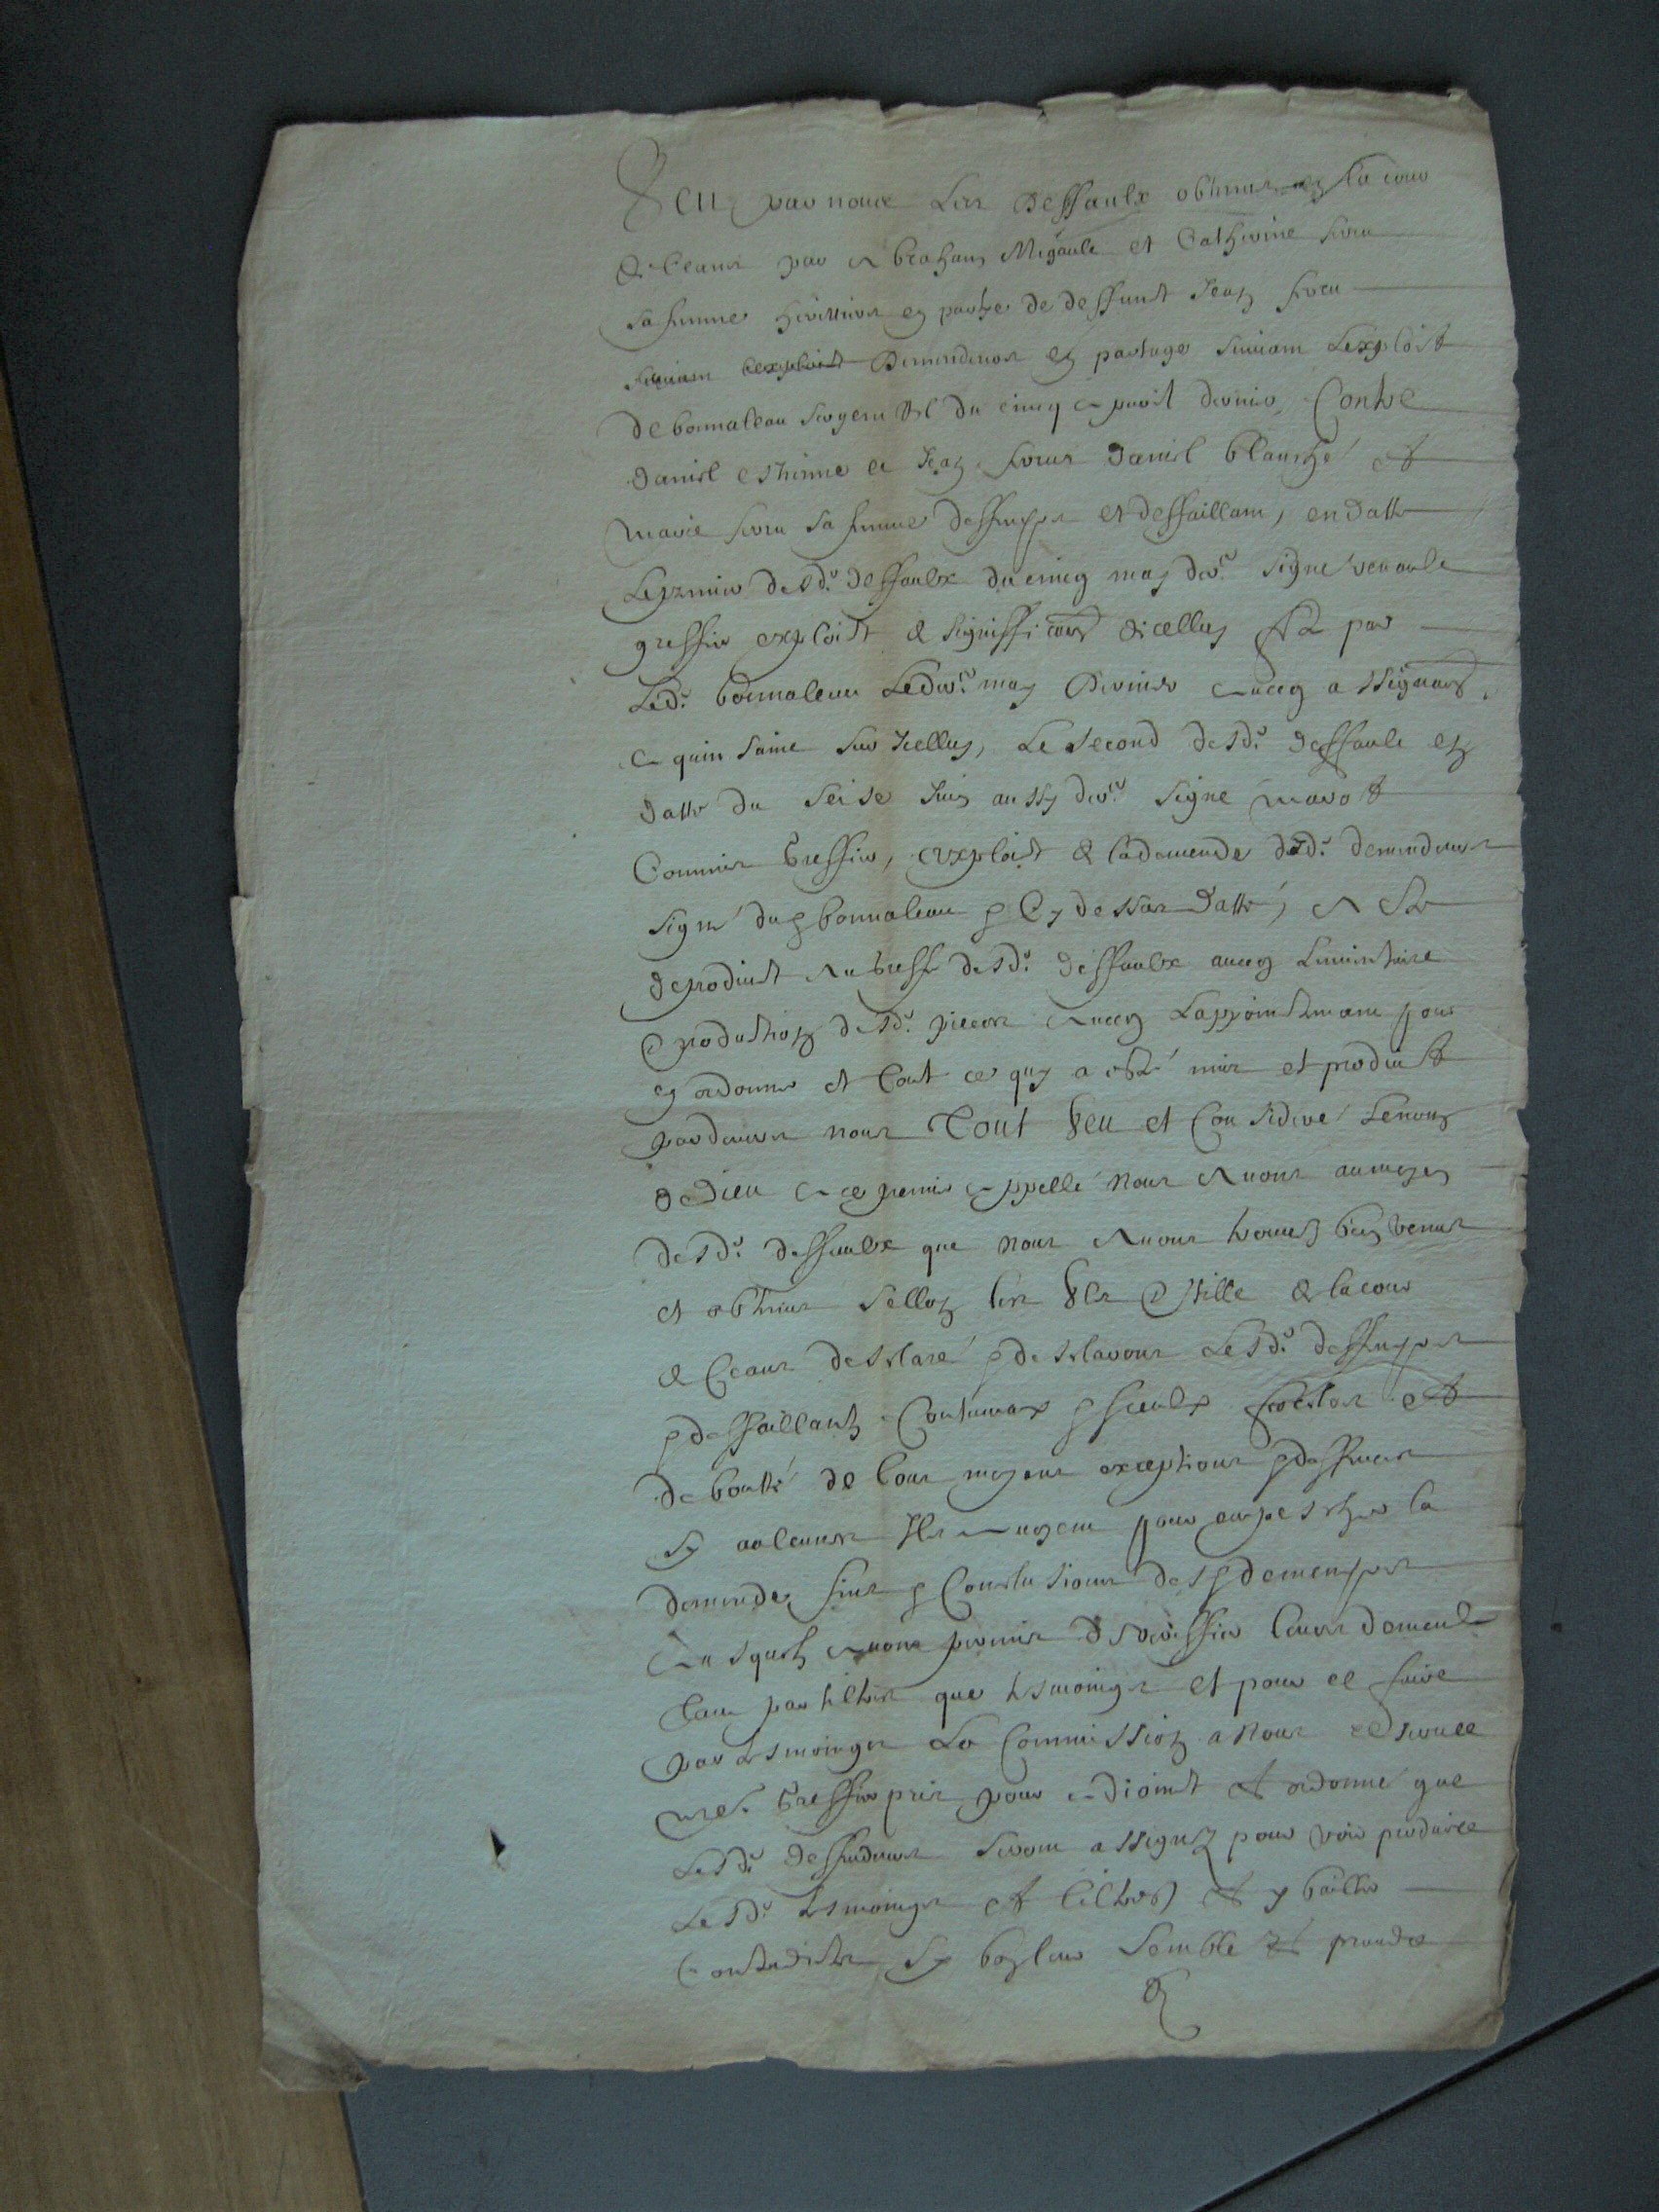 Veu par nous les deffaulx obtenus en la cour
de ceans par Abraham Megault et Catherine
sa femme heritiers en partye de deffunct Jean
demandeurs en partage suivant lexploict
de bonnaleau sergent du cincq apvril dernier, Contre
daniel estienne et Jean daniel blanché et
marie sa femme deffandeurs et deffaillans, en datte
le premier desd. deffaulx du cincq may der. signé
greffier exploict de signiffication dicelluy faict par
led. bonnaleau le may dernier avecq assignation
a quinsaine sur icelluy, le second desd. deffaulx en
datte du seise Juin aussy der. signé marot
Commis greffier, exploict de la demende desd. demendeurs
signé dud bonnaleau & cy dessus datté, Acte
de produict au greffe desd. deffaulx avecq linvintaire
& production desd. pieces avecq lappointement pour
en ordonner et tout ce quy a esté mis et produict
par devers nous Tout Veu et Considéré le nom
de dieu a ce premier appellé nous avons au moyen
desd. deffaulx que nous avons trouvés bien venus
et obtenus sellon les us & stille de la cour
de ceans desclaré & desclarons lesd. deffandeurs
& deffaillans contumax & iceulx forclos et
deboutté de tous moyens exceptions & deffances
sy aulcunes Ils avoyent pour empescher la
demende fins & Conclusions desd demendeurs
Ausquels avons permis de veriffier leurs demende
tant par tiltres que tesmoings et pour ce faire
par tesmoings la Commission a nous reservee
nre. Greffier pris pour adjoint et ordonné que
lesd. deffandeurs seront assignez pour voir produire
lesd. tesmoings et tiltres et y bailler
contredictz sy bon leur semble et prandre